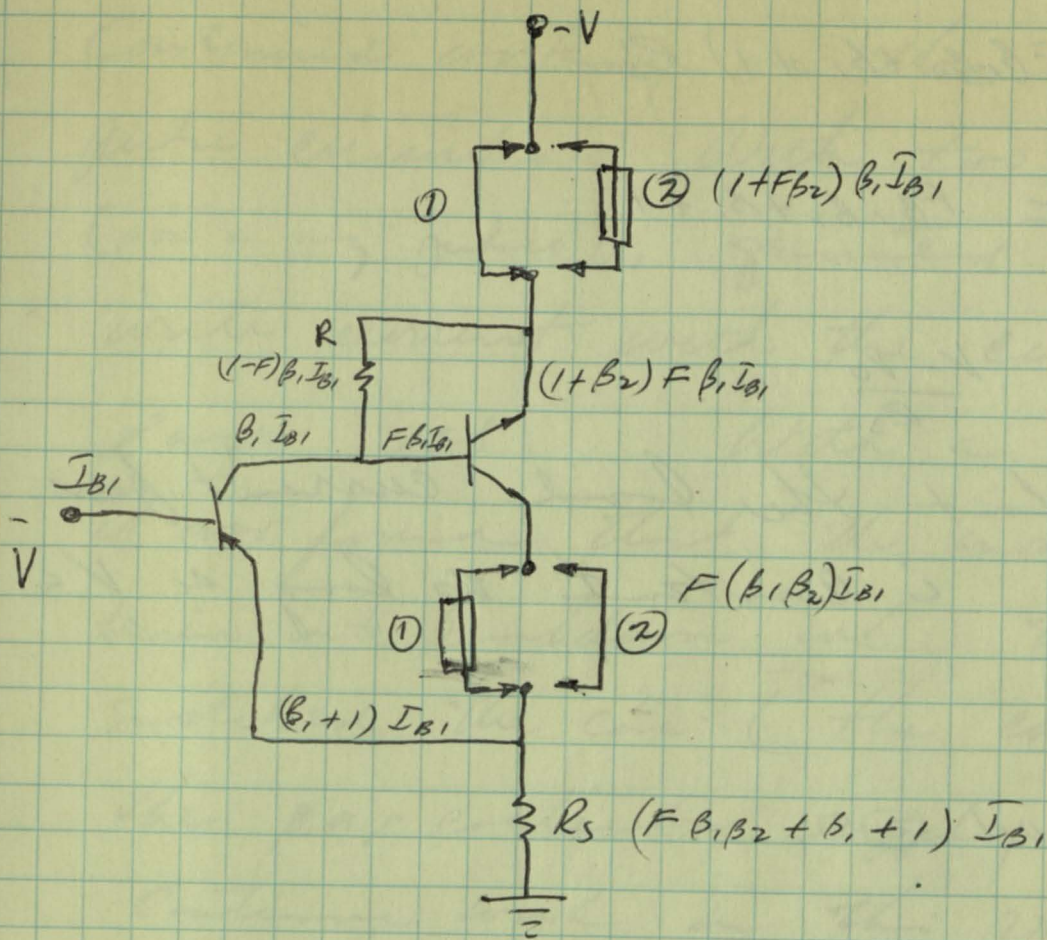 -V
① ② (1+Fβ₂) β₁ I_B1
R
(1-F)β₁ I_B1
(1+β₂) F β₁ I_B1
β₁ I_B1 Fβ₁ I_B1
I_B1
-
V
F(β₁β₂) I_B1
① ②
(β₁+1) I_B1
R_S (Fβ₁β₂ + β₁ + 1) I_B1